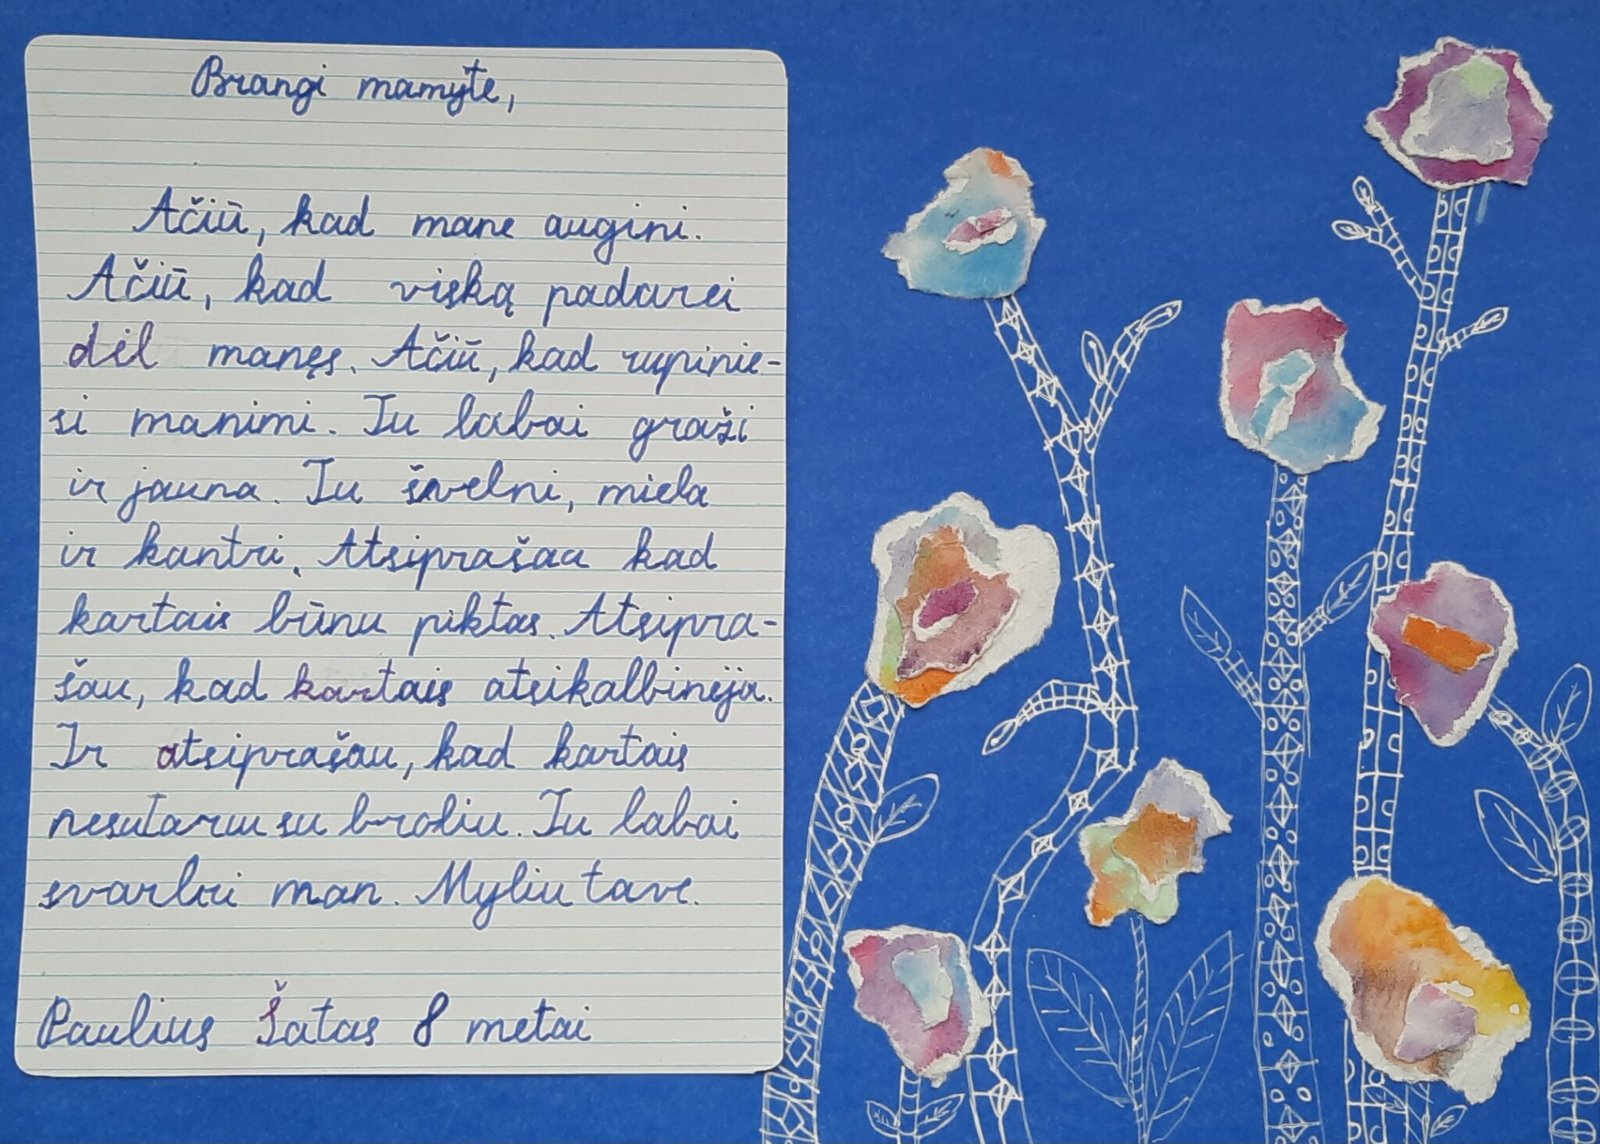 Brangi mamyte,
Ačiū, kad mane augini.
Ačiū, kad viską padarei
dėl manęs. Ačiū, kad rupinie-
si manimi. Tu labai graži
ir jauna. Tu švelni, miela
ir kantri. Atsiprašau kad
kartais būnu piktas. Atsipra-
šau, kad kartais atsikalbinėja.
Ir atsiprašau, kad kartais
nesutariu su broliu. Tu labai
svarbi man. Myliu tave.
Paulius Šatas 8 metai